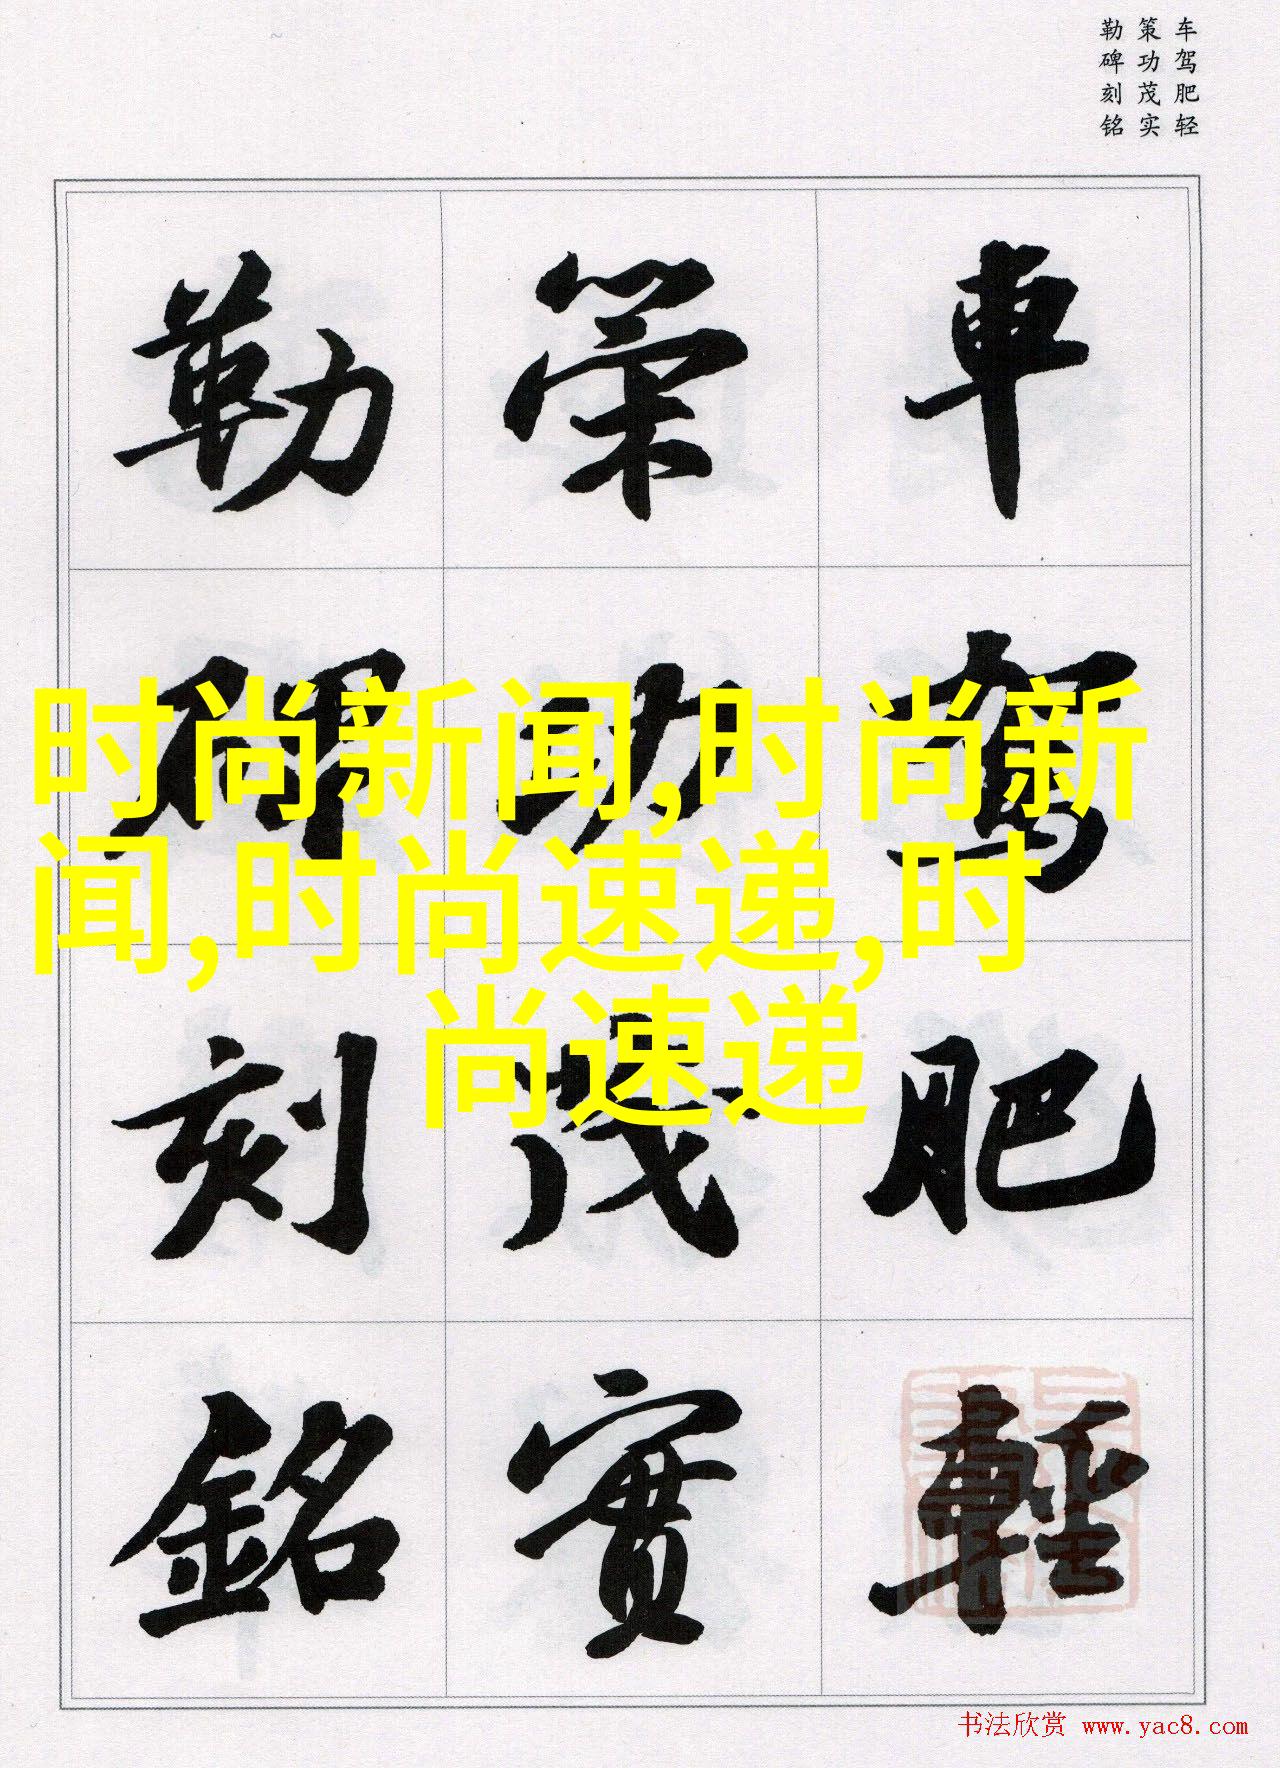 车驾肥轻
策功茂实
勒碑刻铭
車
駕
肥
輕
策
功
茂
實
勒
碑
刻
銘
时尚新闻,时尚新
闻,时尚速递,时
尚速递
书法欣赏 www.yac8.com